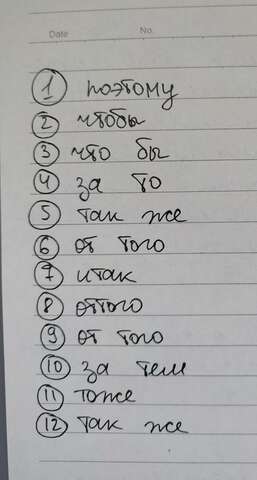 Date No.
1 поэтому
2 чтобы
3 что бы
4 за то
5 так же
6 от того
7 итак
8 оттого
9 от того
10 за тем
11 тоже
12 так же